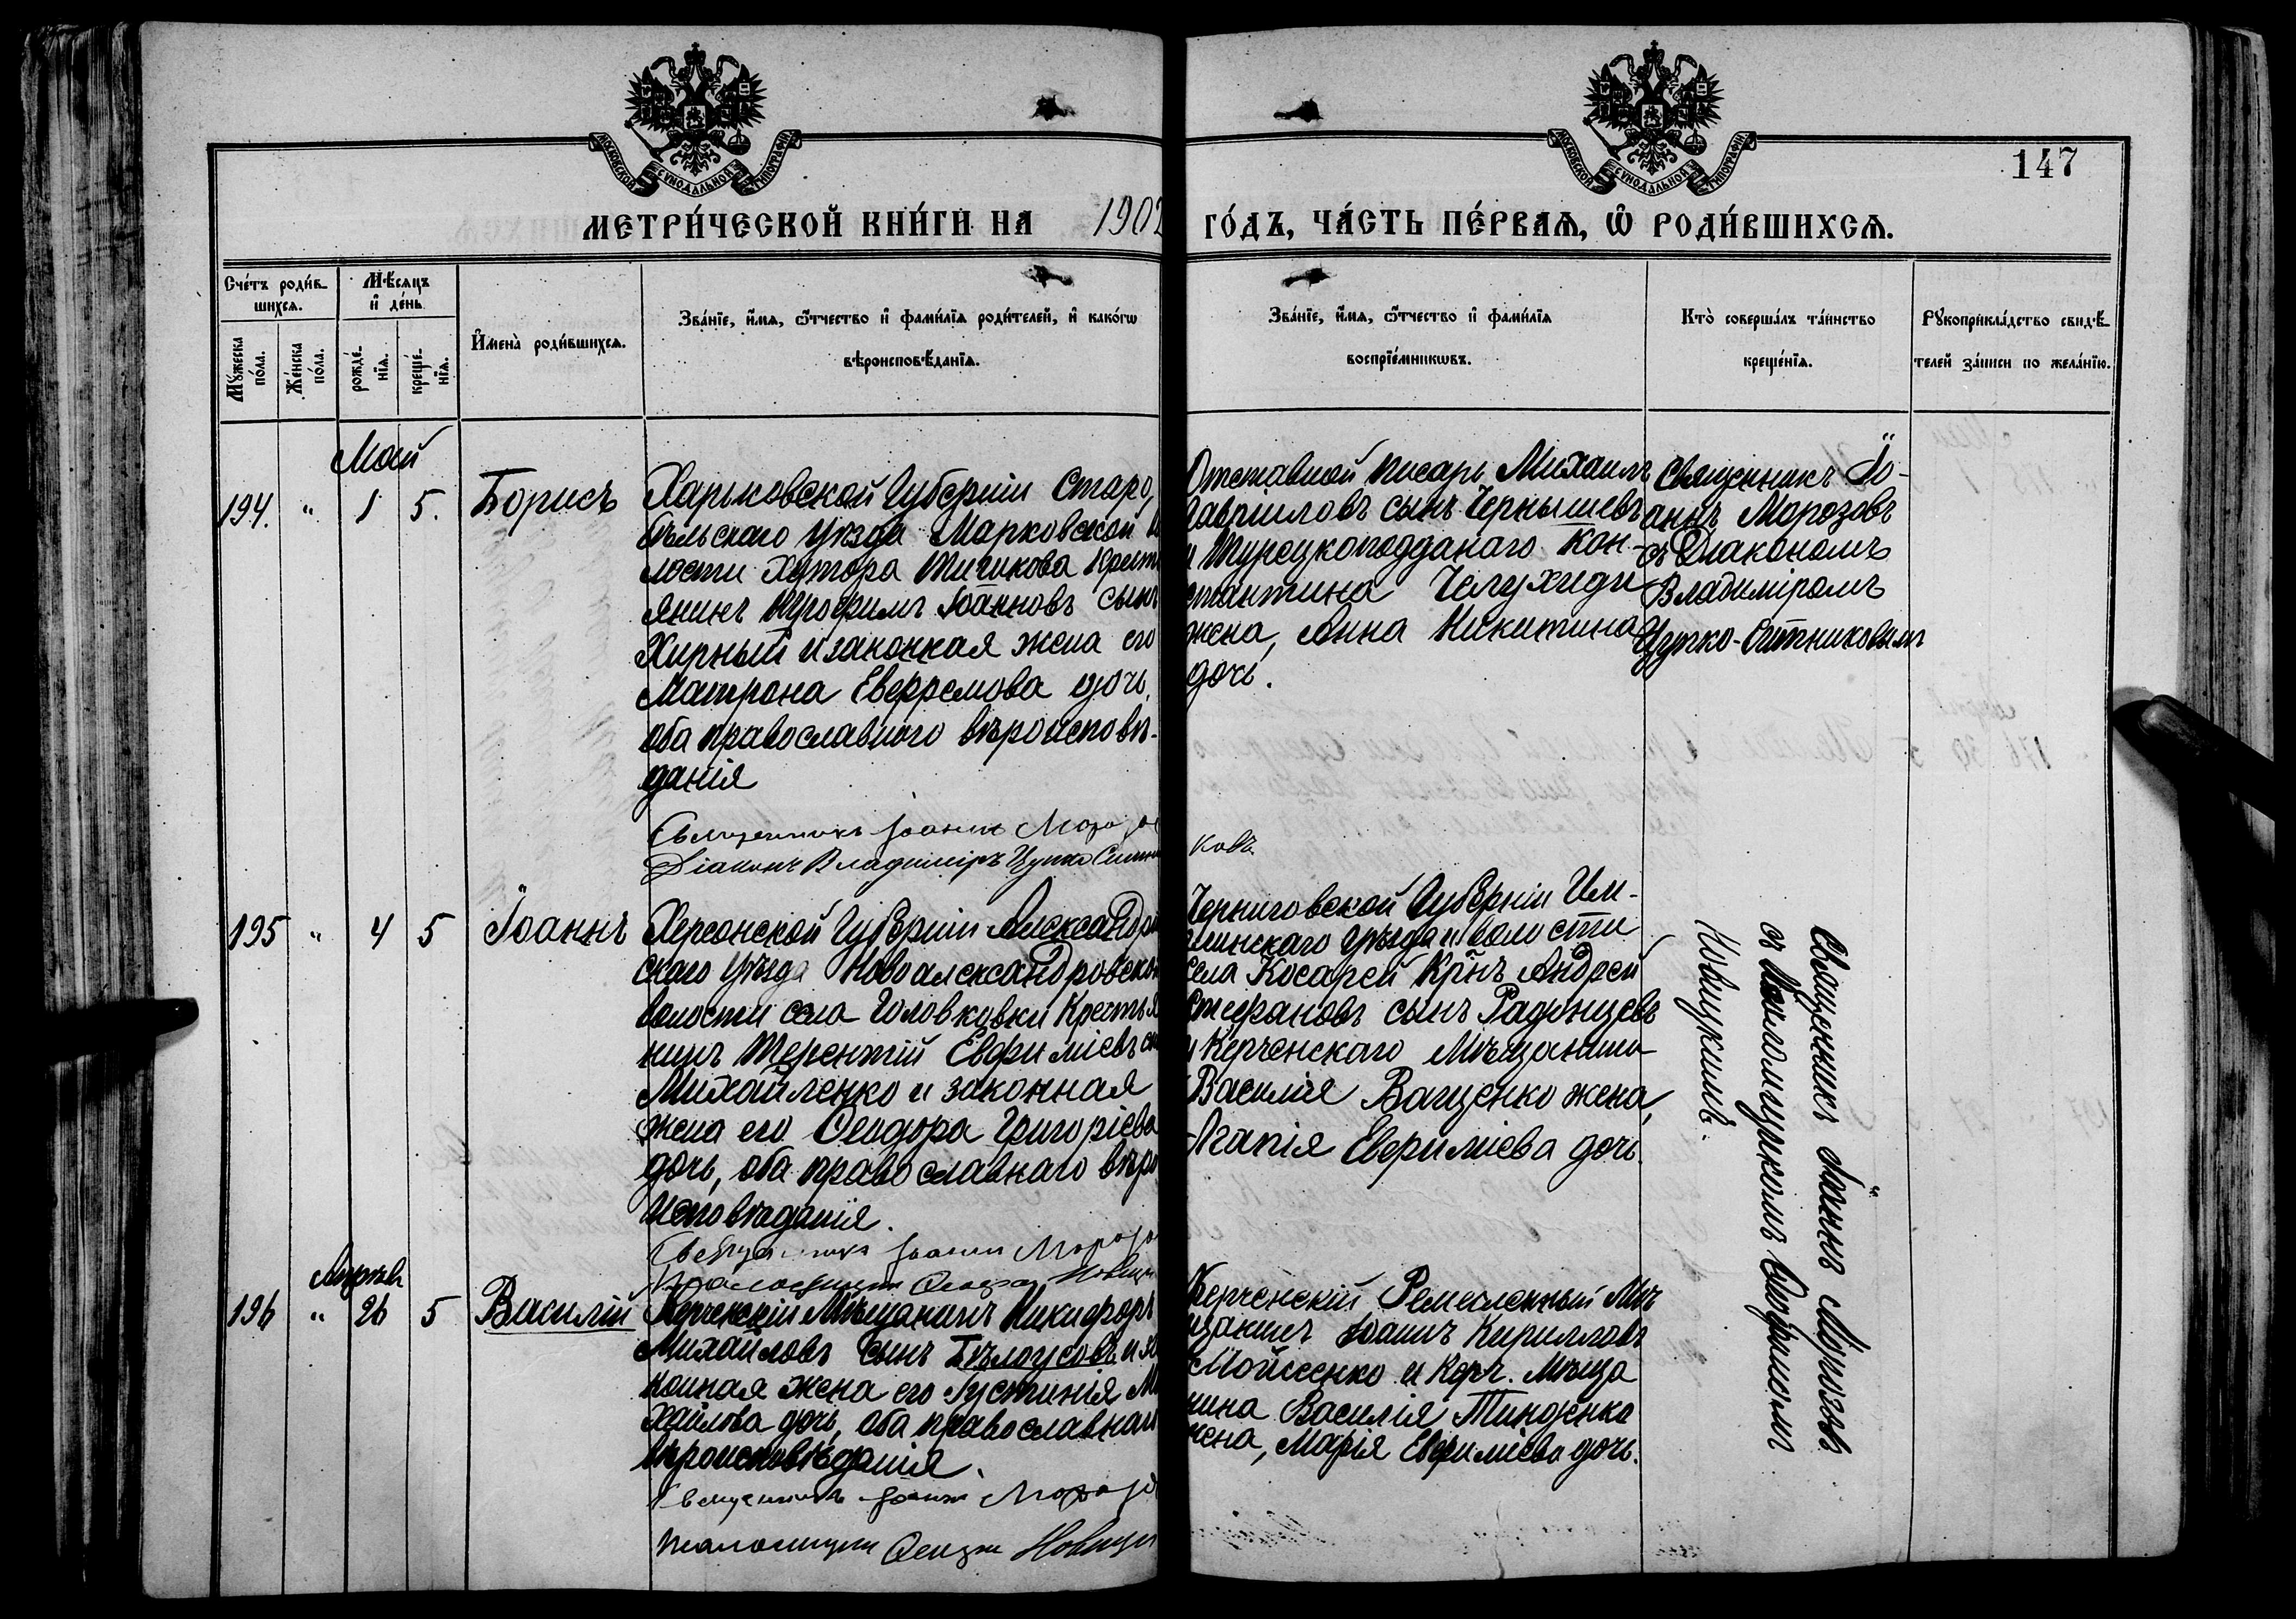 МОСКОВСКОЙ СУНОДАЛЬНОЙ ТИПОГРАФІИ
МОСКОВСКОЙ СУНОДАЛЬНОЙ ТИПОГРАФІИ
147
МЕТРИ́ЧЕСКОЙ КНИ́ГИ НА 1902 ГО́ДЪ, ЧА́СТЬ ПЕ́РВАѦ, Ѿ РОДИ́ВШИХСѦ.
Сче́тъ роди́в-
шихсѧ.
Му́жеска по́ла.
Же́нска по́ла.
Мѣ́сѧцъ
и҆ де́нь
рожде́-
нїѧ.
креще́-
нїѧ.
И҆мена̀ роди́вшихсѧ.
Зва́нїе, и҆́мѧ, ѻ҆́тчество и҆ фами́лїѧ роди́телей, и҆ како́гѡ
вѣроисповѣ́данїѧ.
Зва́нїе, и҆́мѧ, ѻ҆́тчество и҆ фами́лїѧ
воспрїе́мникѡвъ.
Кто̀ соверша́лъ та́инство
креще́нїѧ.
Рꙋкоприкла́дство свидѣ́-
телей за́писи по жела́нїю.
Май
194. " 1 5. Борисъ
Харьковской Губерніи Старо
бѣльскаго уѣзда Марковской
лости Хутора
янинъ Трофимъ Іоанновъ сынъ
Жирный и законная жена его
Матрона Евфремова дочь,
оба православного вѣроисповѣ-
данія
Священникъ Іоаннъ Мороз
Діаконъ Владиміръ Цупко Ситни
ковъ.
Отставной писарь Михаилъ
Гавріиловъ сынъ Чернышевъ
и Турецкоподданаго Кон-
стантина
жена, Анна Никитина
дочь.
Священникъ Іо-
аннъ Морозовъ
съ Діакономъ
Владиміромъ
Цупко-Ситниковымъ
195 " 4 5 Іоаннъ
Херсонской Губерніи Александрій
скаго уѣзда Новоалександровской
волости села Головковки Крестья
нинъ Терентій Евфиміевъ
Михайленко и законная
жена его Ѳеодора Григоріева
дочь, оба православнаго вѣро
исповѣданія.
Священникъ Іоаннъ Морозо
Псаломщикъ Новиц
Черниговской Губерніи
уѣзда и волости
села Косарей Крн̃ъ Андрей
Стефановъ сынъ Радунцевъ
и Керченскаго Мѣщанина
Василія Ващенко жена,
Агапія Евфиміева дочь.
Священникъ Іоаннъ Морозовъ
съ Псаломщикомъ
Новицкимъ.
Апрѣль
196 " 26 5 Василій
Керченскій Мѣщанинъ Никифоръ
Михайловъ сынъ Бѣлоусовъ и за
конная жена его Іустинія Ми
хайлова дочь, оба православнаго
вѣроисповѣданія.
Священникъ Іоаннъ Морозо
Псаломщикъ Новицк
Керченскій Ремесленный Мѣ
щанинъ Іоаннъ Кирилловъ
Мойсеенко и Керч. Мѣща
нина Василія Тимченко
жена, Марія Евфиміева дочь.